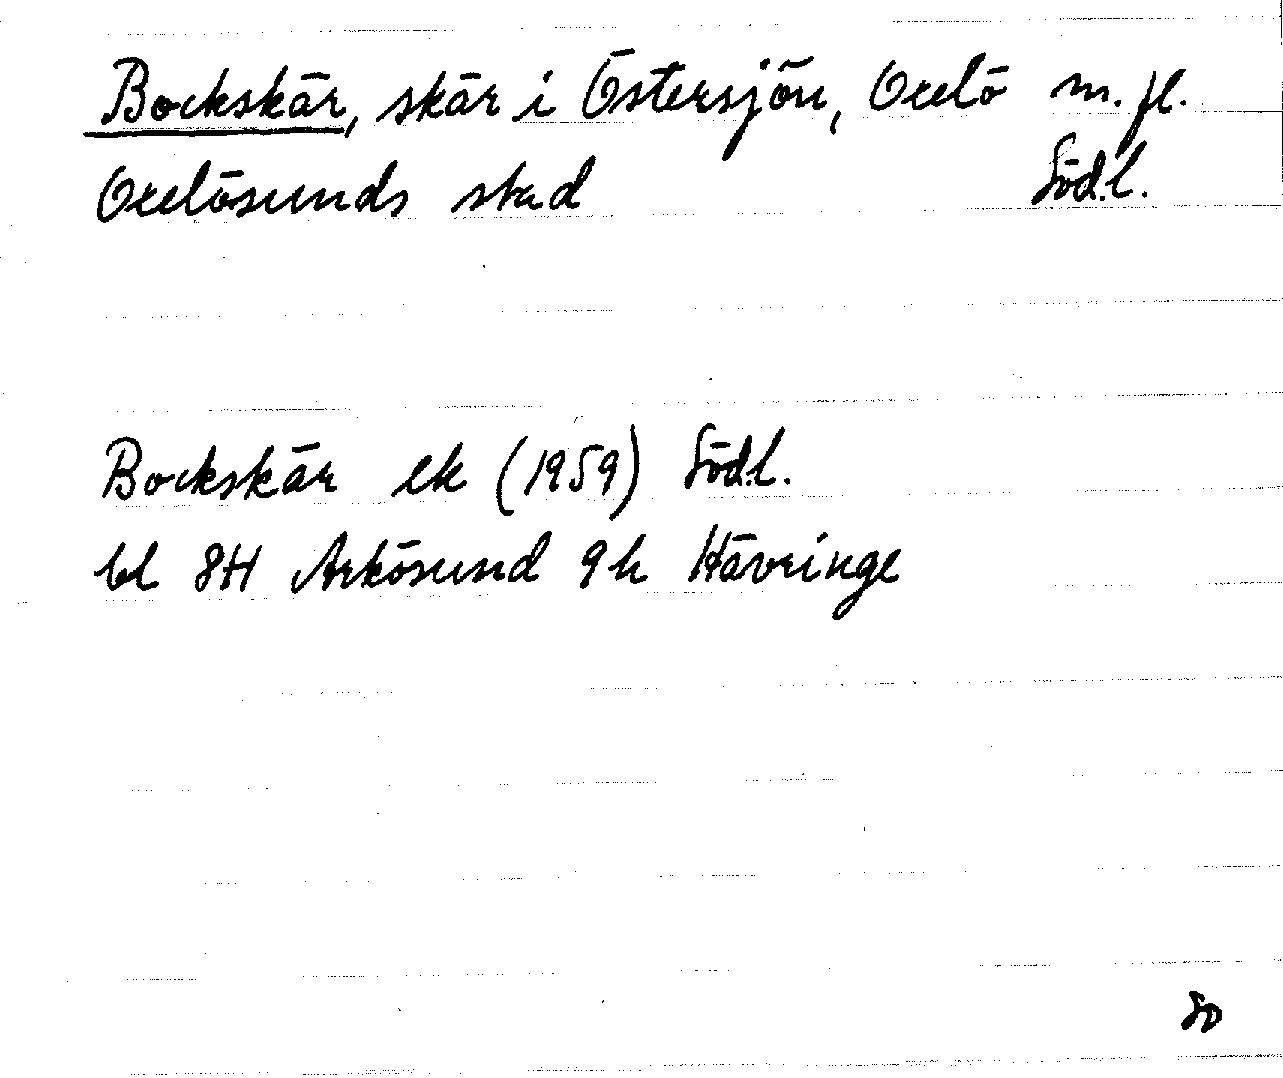 Bockskär, skär i Östersjön, Oxelö m.fl.
Oxelösunds stad Södl.
Bockskär ek (1959) Södl.
bl 8H Arkösund 9h Hävringe
SD